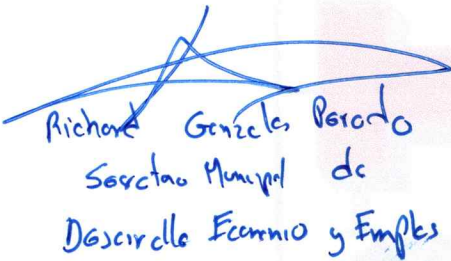 Richard Gonzales Parado
Secretario Municipal de
Desarrollo Economio y Empleo